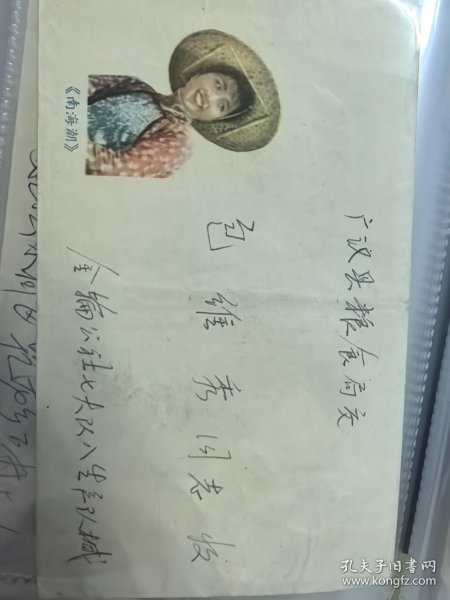 《南海潮》
广汉县粮食局交
包维秀同志收
金输公社七大队八生产队械
孔夫子旧书网
www.kongfz.com